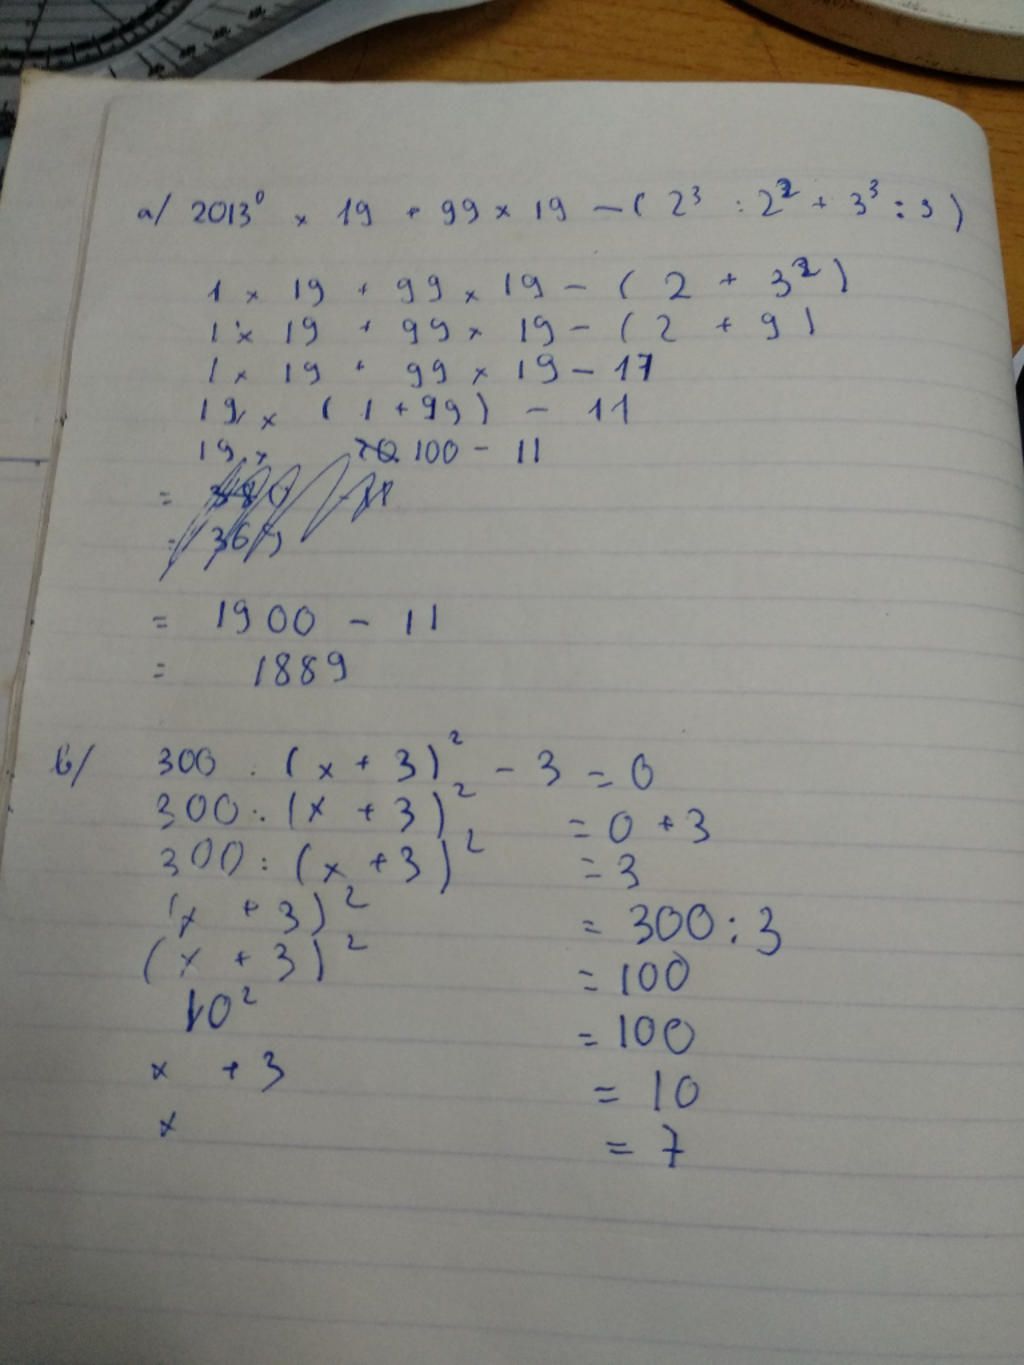 a/ 2013⁰ × 19 + 99 × 19 – ( 2³ : 2² + 3³ : 3 )
1 × 19 + 99 × 19 – ( 2 + 3² )
1 × 19 + 99 × 19 – ( 2 + 9 )
1 × 19 + 99 × 19 – 11
19 × ( 1 + 99 ) – 11
19 × 100 – 11
= 1900 – 11
= 1889
b/ 300 : ( x + 3 )² – 3 = 0
300 : ( x + 3 )² = 0 + 3
300 : ( x + 3 )² = 3
( x + 3 )² = 300 : 3
( x + 3 )² = 100
10² = 100
x + 3 = 10
x = 7